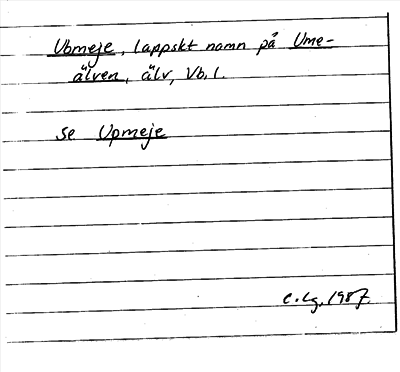 Ubmeje, lappskt namn på Ume-
älven, älv, Vb. l.
se Upmeje
C. Lg. 1987.